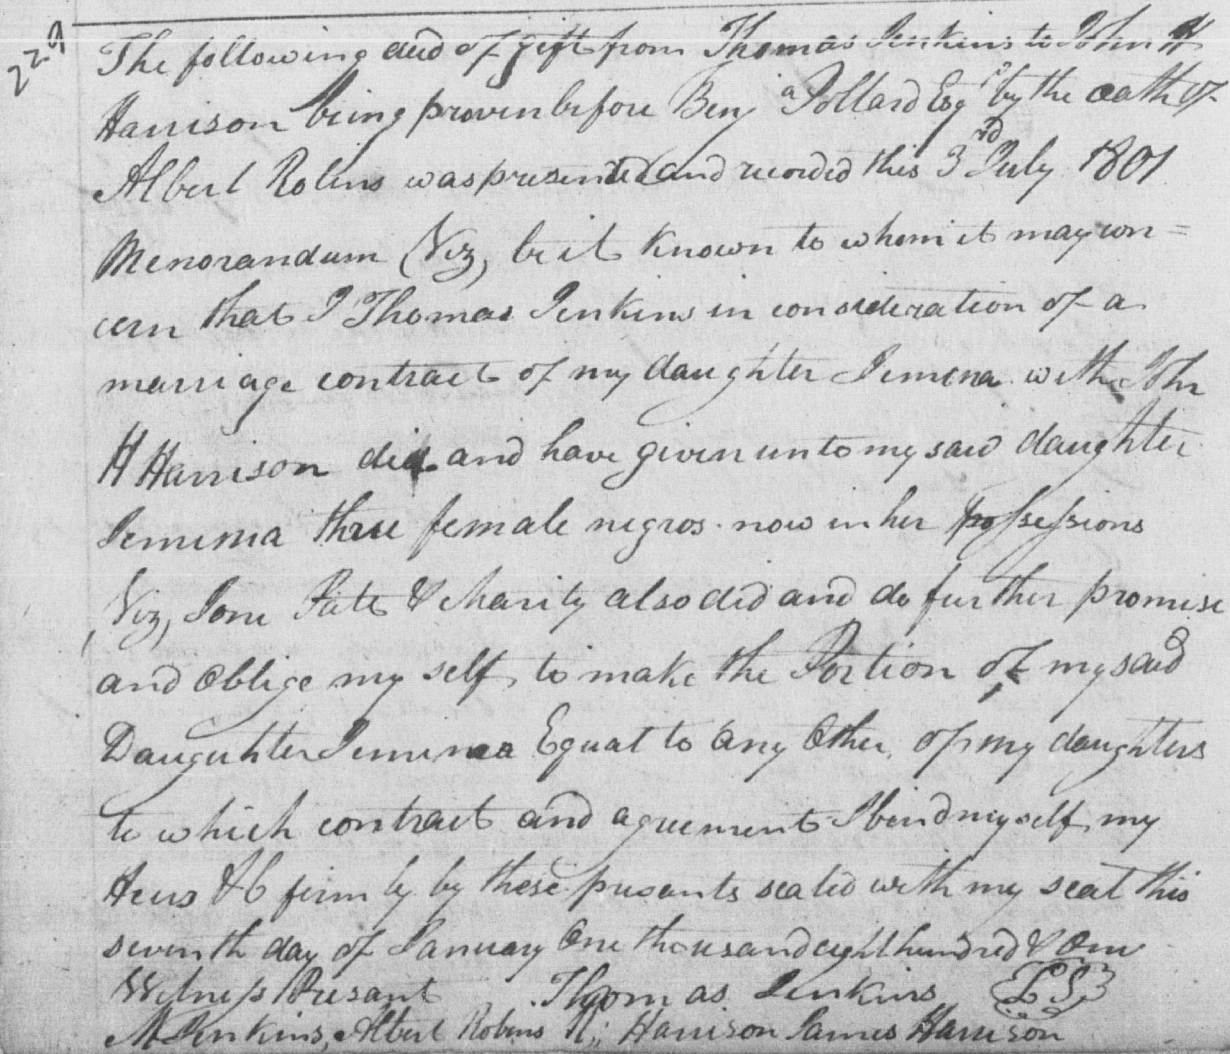 229
The following deed of gift from Thomas Jenkins to John H
Harrison being proven before Benja Pollard Esqr by the oath of
Albert Robins was presented and recorded this 3rd July 1801
Memorandum (Viz, be it known to whom it may con=
cern that I Thomas Jenkins in consideration of a
marriage contract of my daughter Jemima with John
H Harrison did and have given unto my said daughter
Jemima three female negros now in her possessions
Viz, Jone Pate & Charity also did and do further promise
and Oblige my self to make the Portion of my said
Dauguhter Jemima Equal to any Other of my daughters
to which contract and agreement I bind myself my
Heirs &C firmly by these presants sealed with my seal this
seventh day of January One thousand eight hundred & One
Witness Presant Thomas Jenkins LS
M Jenkins, Albert Robins Harrison James Harrison